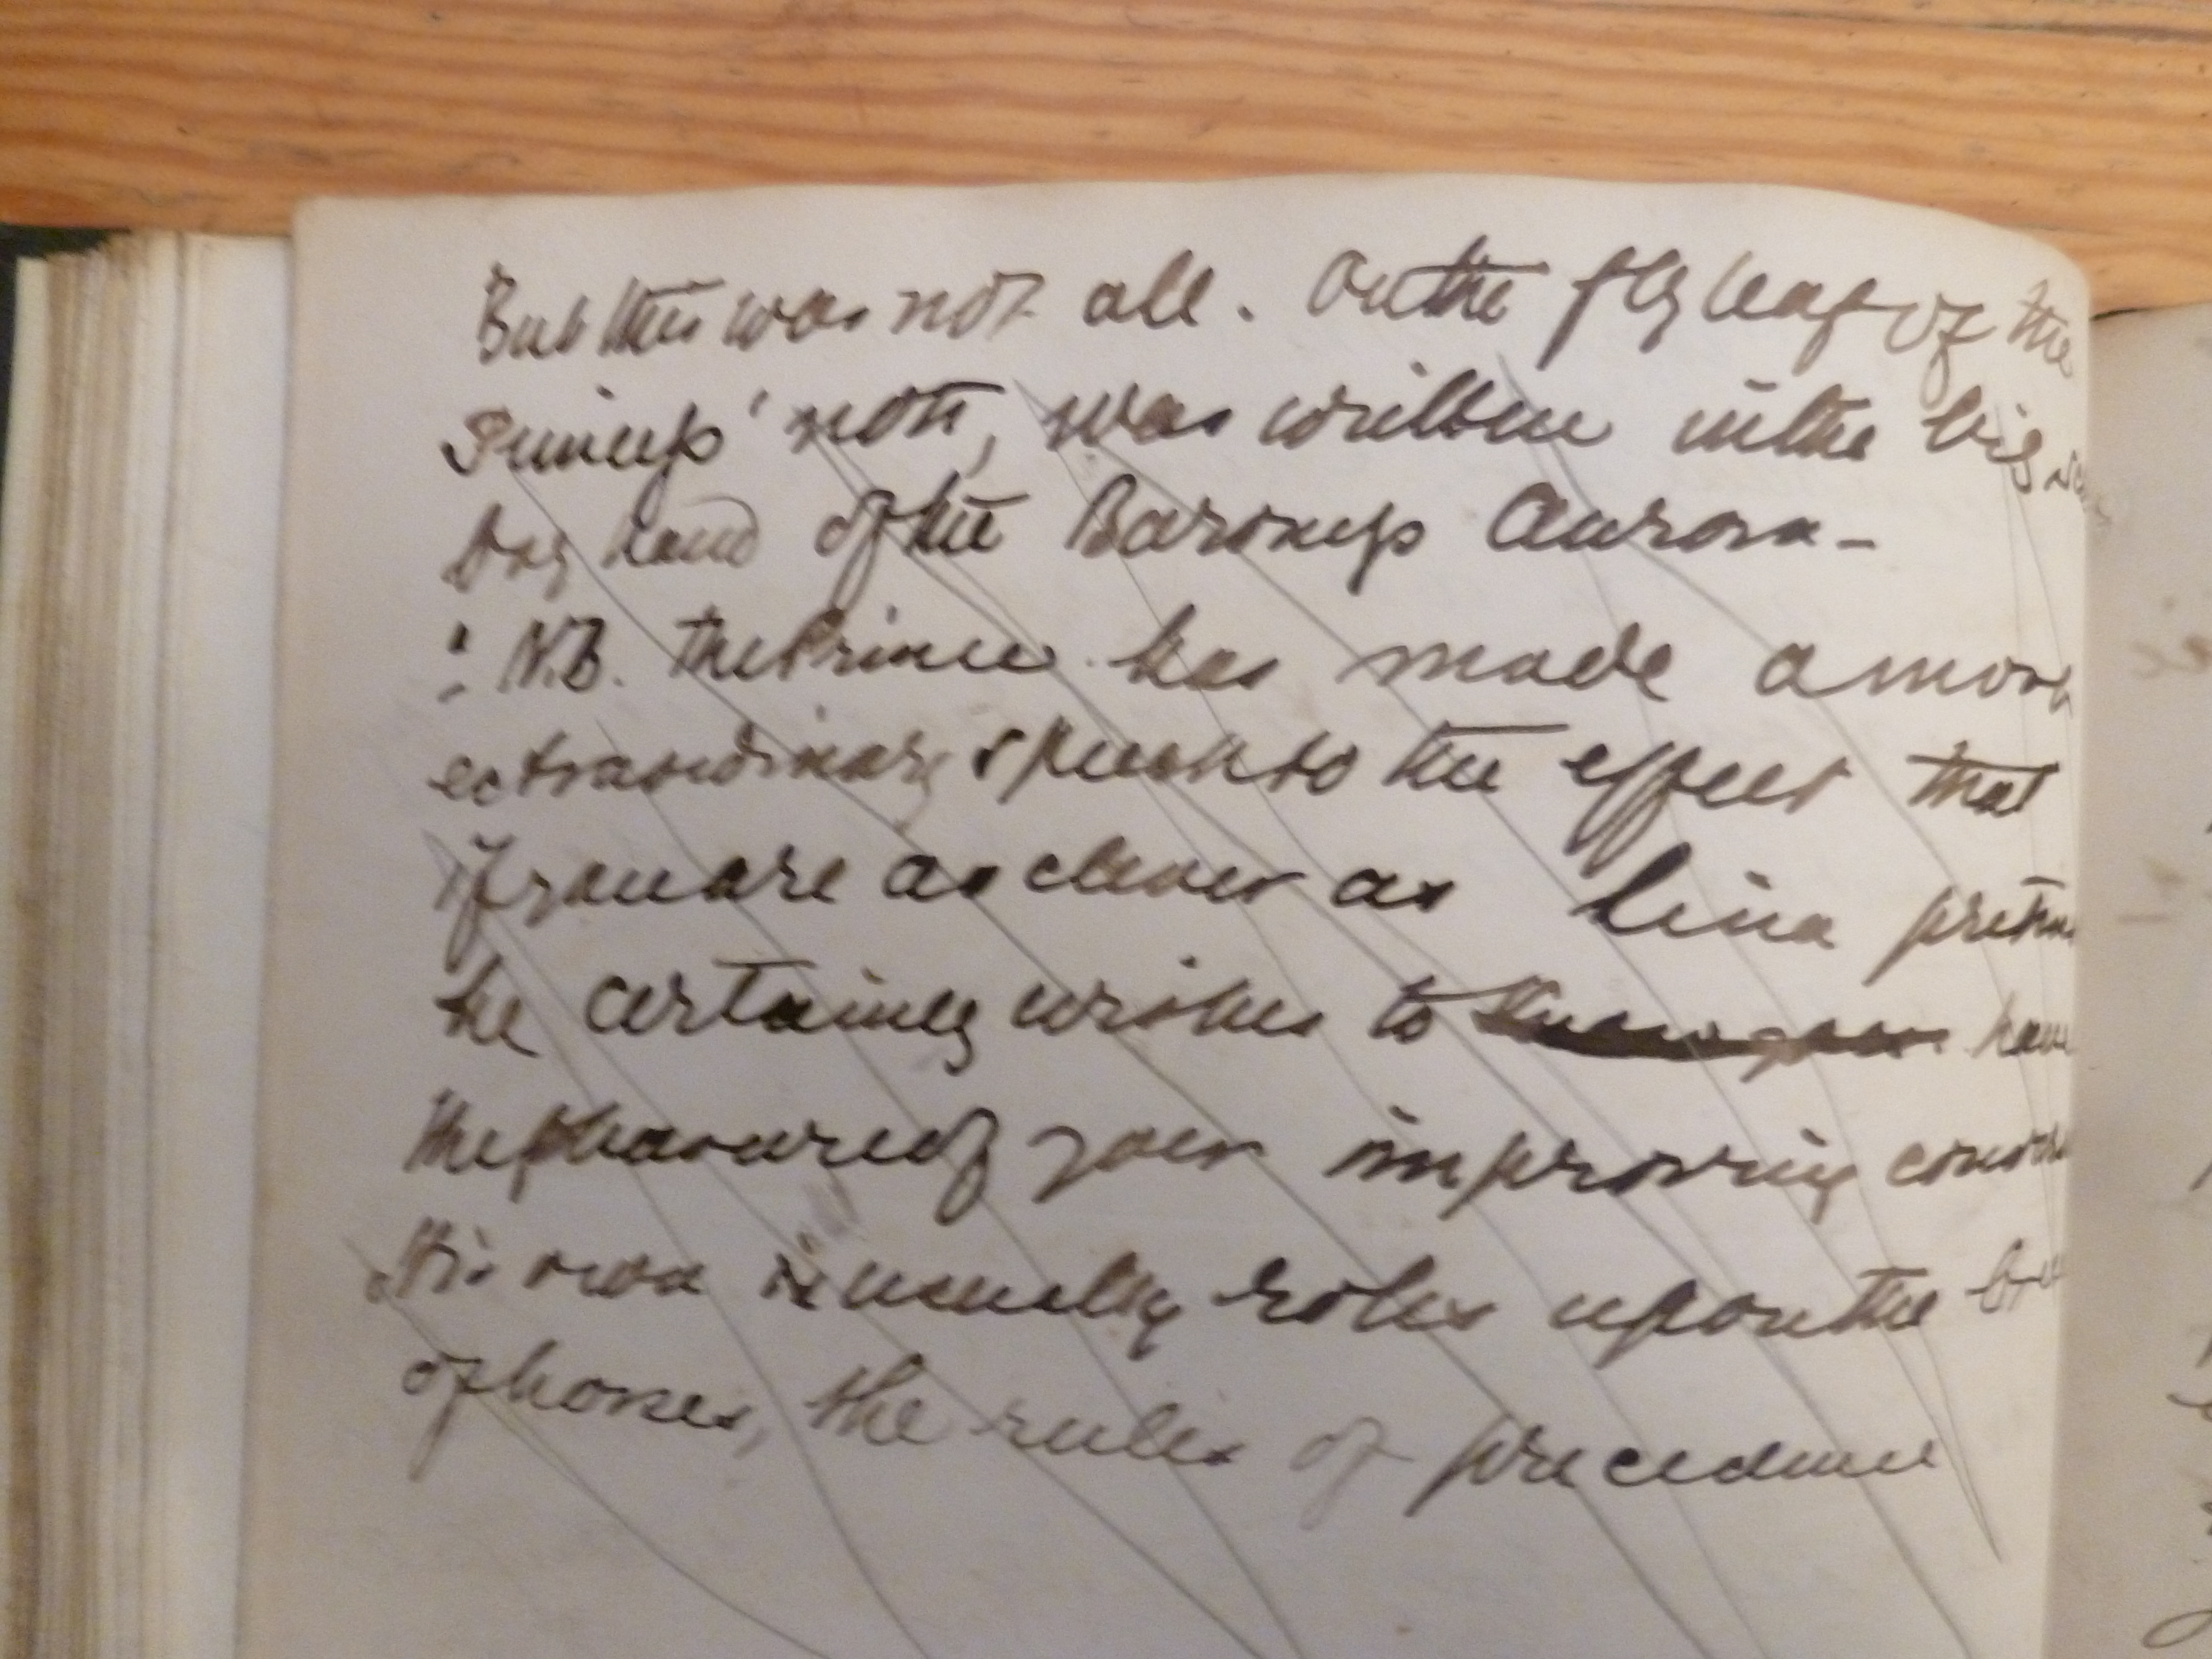 But this was not all. On the fly leaf of the
Princess' note, was written in the big
boy hand of the Baroness Aurora -
: N.B. The Prince has made a most
extraordinary speech to the effect that
if you are as clever as Lina
he certainly wishes to have
the pleasure of your improving
His own is usually upon the
of horses, the rules of precedence